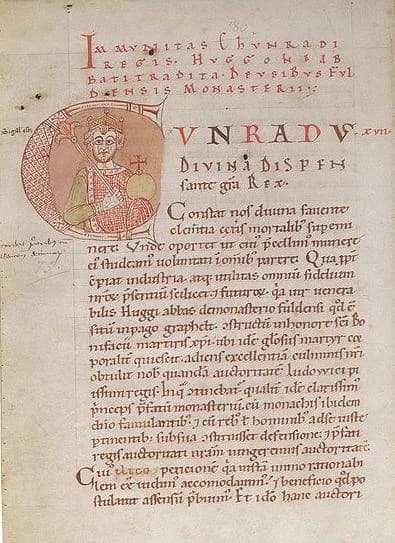 IMMUNITAS CHUNRADI
REGIS. HUGGONI AB
BATI TRADITA. DE USIBUS FUL
DENSIS MONASTERII;
CUNRADUS xvii
DIVINA DISPEN
sante gra Rex.
Constat nos divina favente
clementia ceteris mortalibus supemi
nere; Unde oportet ut cui pcellimus munere
ei studeamus voluntati in omnibus parere. Quapp
cipiat industria atq; utilitas omnium fidelium
nrorum psentium scilicet & futurorum. qa vir venera
bilis Huggi abbas de monasterio fuldensi qd e
situm in pago graphelt. constructum in honore sci Bo
nifacii martiris xpi. ubi ide gloriosus martyr cor
poralit quiescit. adiens excellentiam culminis nri
obtulit nob quanda auctoritate Ludowici pi
issimi regis. In q continebat qualit ide clarissim
princeps pfatum monasterium. cum monachis ibidem
dno famulantib; & cum reb; & hominib; ad se iuste
ptinentib; sub sua constituisset defensione; pfati
regis auctoritati nram iungeremus auctoritate
Cui peticione qa iusta immo rationabi
lem ee vidimus accomodavim; & beneficio qd po
stulavit assensum pbuim. Et ido hanc auctori